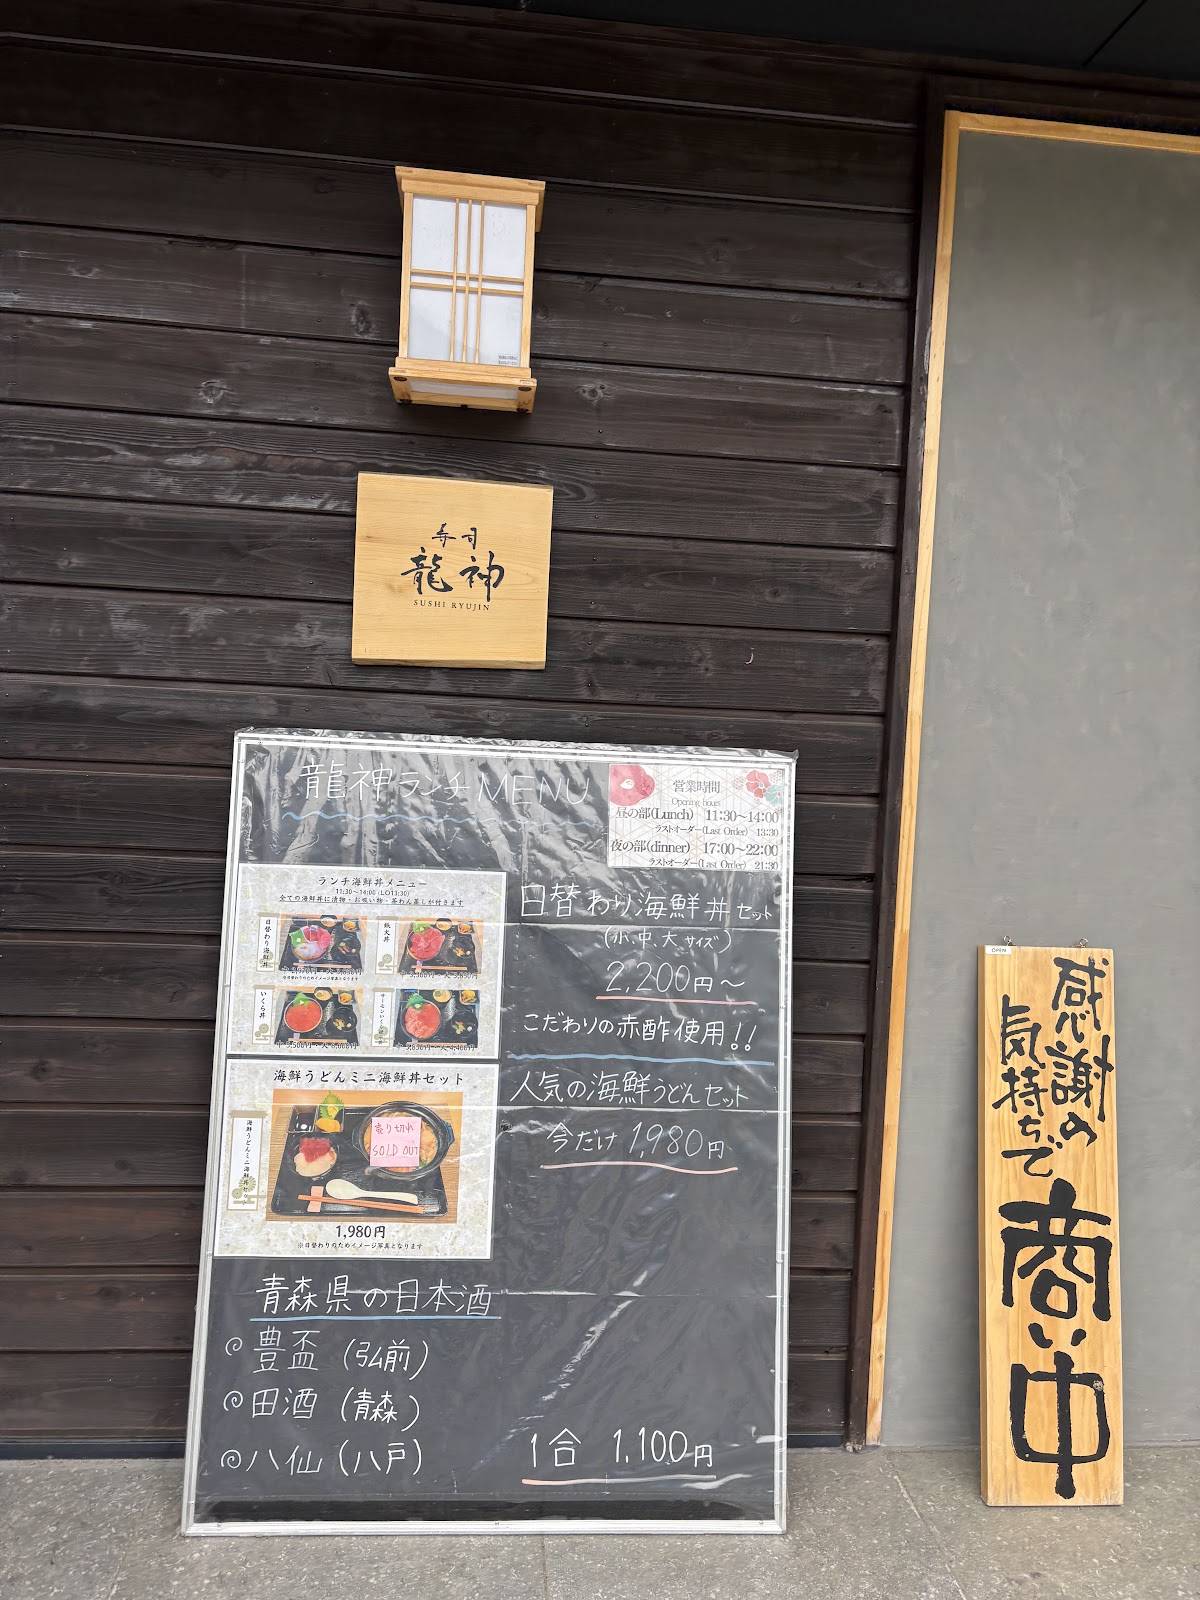 寿司
龍神
SUSHI RYUJIN
龍神ランチMENU
営業時間
Opening hours
昼の部(Lunch) 11:30〜14:00
ラストオーダー(Last Order) 13:30
夜の部(dinner) 17:00〜22:00
ラストオーダー(Last Order) 21:30
ランチ海鮮丼メニュー
11:30〜14:00 (LO13:30)
全ての海鮮丼に漬物・お吸い物・茶わん蒸しが付きます
日替わり海鮮丼
鉄火丼
※日替わりのためイメージ写真となります
いくら丼
サーモンいくら丼
海鮮うどんミニ海鮮丼セット
海鮮うどんミニ海鮮丼セット
売り切れ
SOLD OUT
1,980円
※日替わりのためイメージ写真となります
日替わり海鮮丼セット
(小、中、大 サイズ)
2,200円〜
こだわりの赤酢使用!!
人気の海鮮うどんセット
今だけ 1,980円
青森県の日本酒
豊盃 (弘前)
田酒 (青森)
八仙 (八戸)
1合 1,100円
OPEN
感謝の
気持ちで
商い中